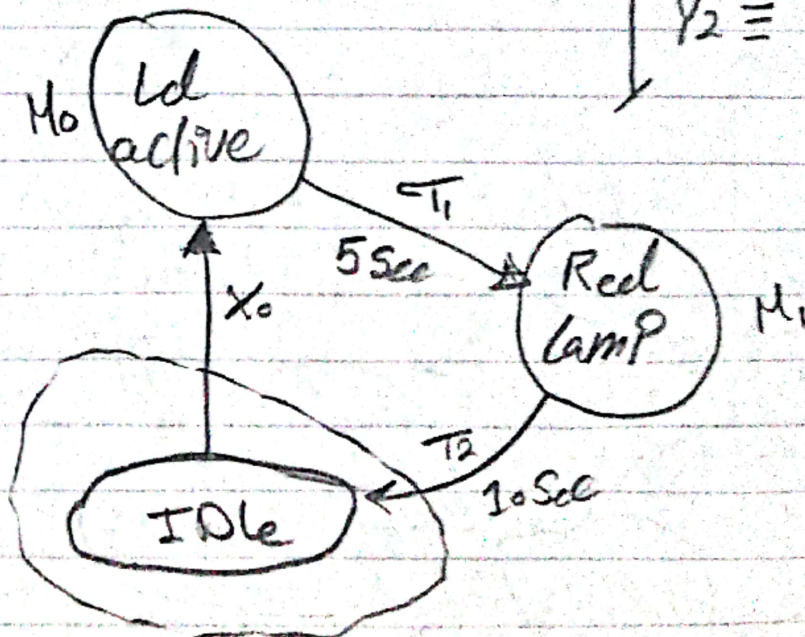 Y2 ≡
Ld
active
M0
T1
5 Sec
Red
lamp
M1
X0
T2
10 Sec
IDLe